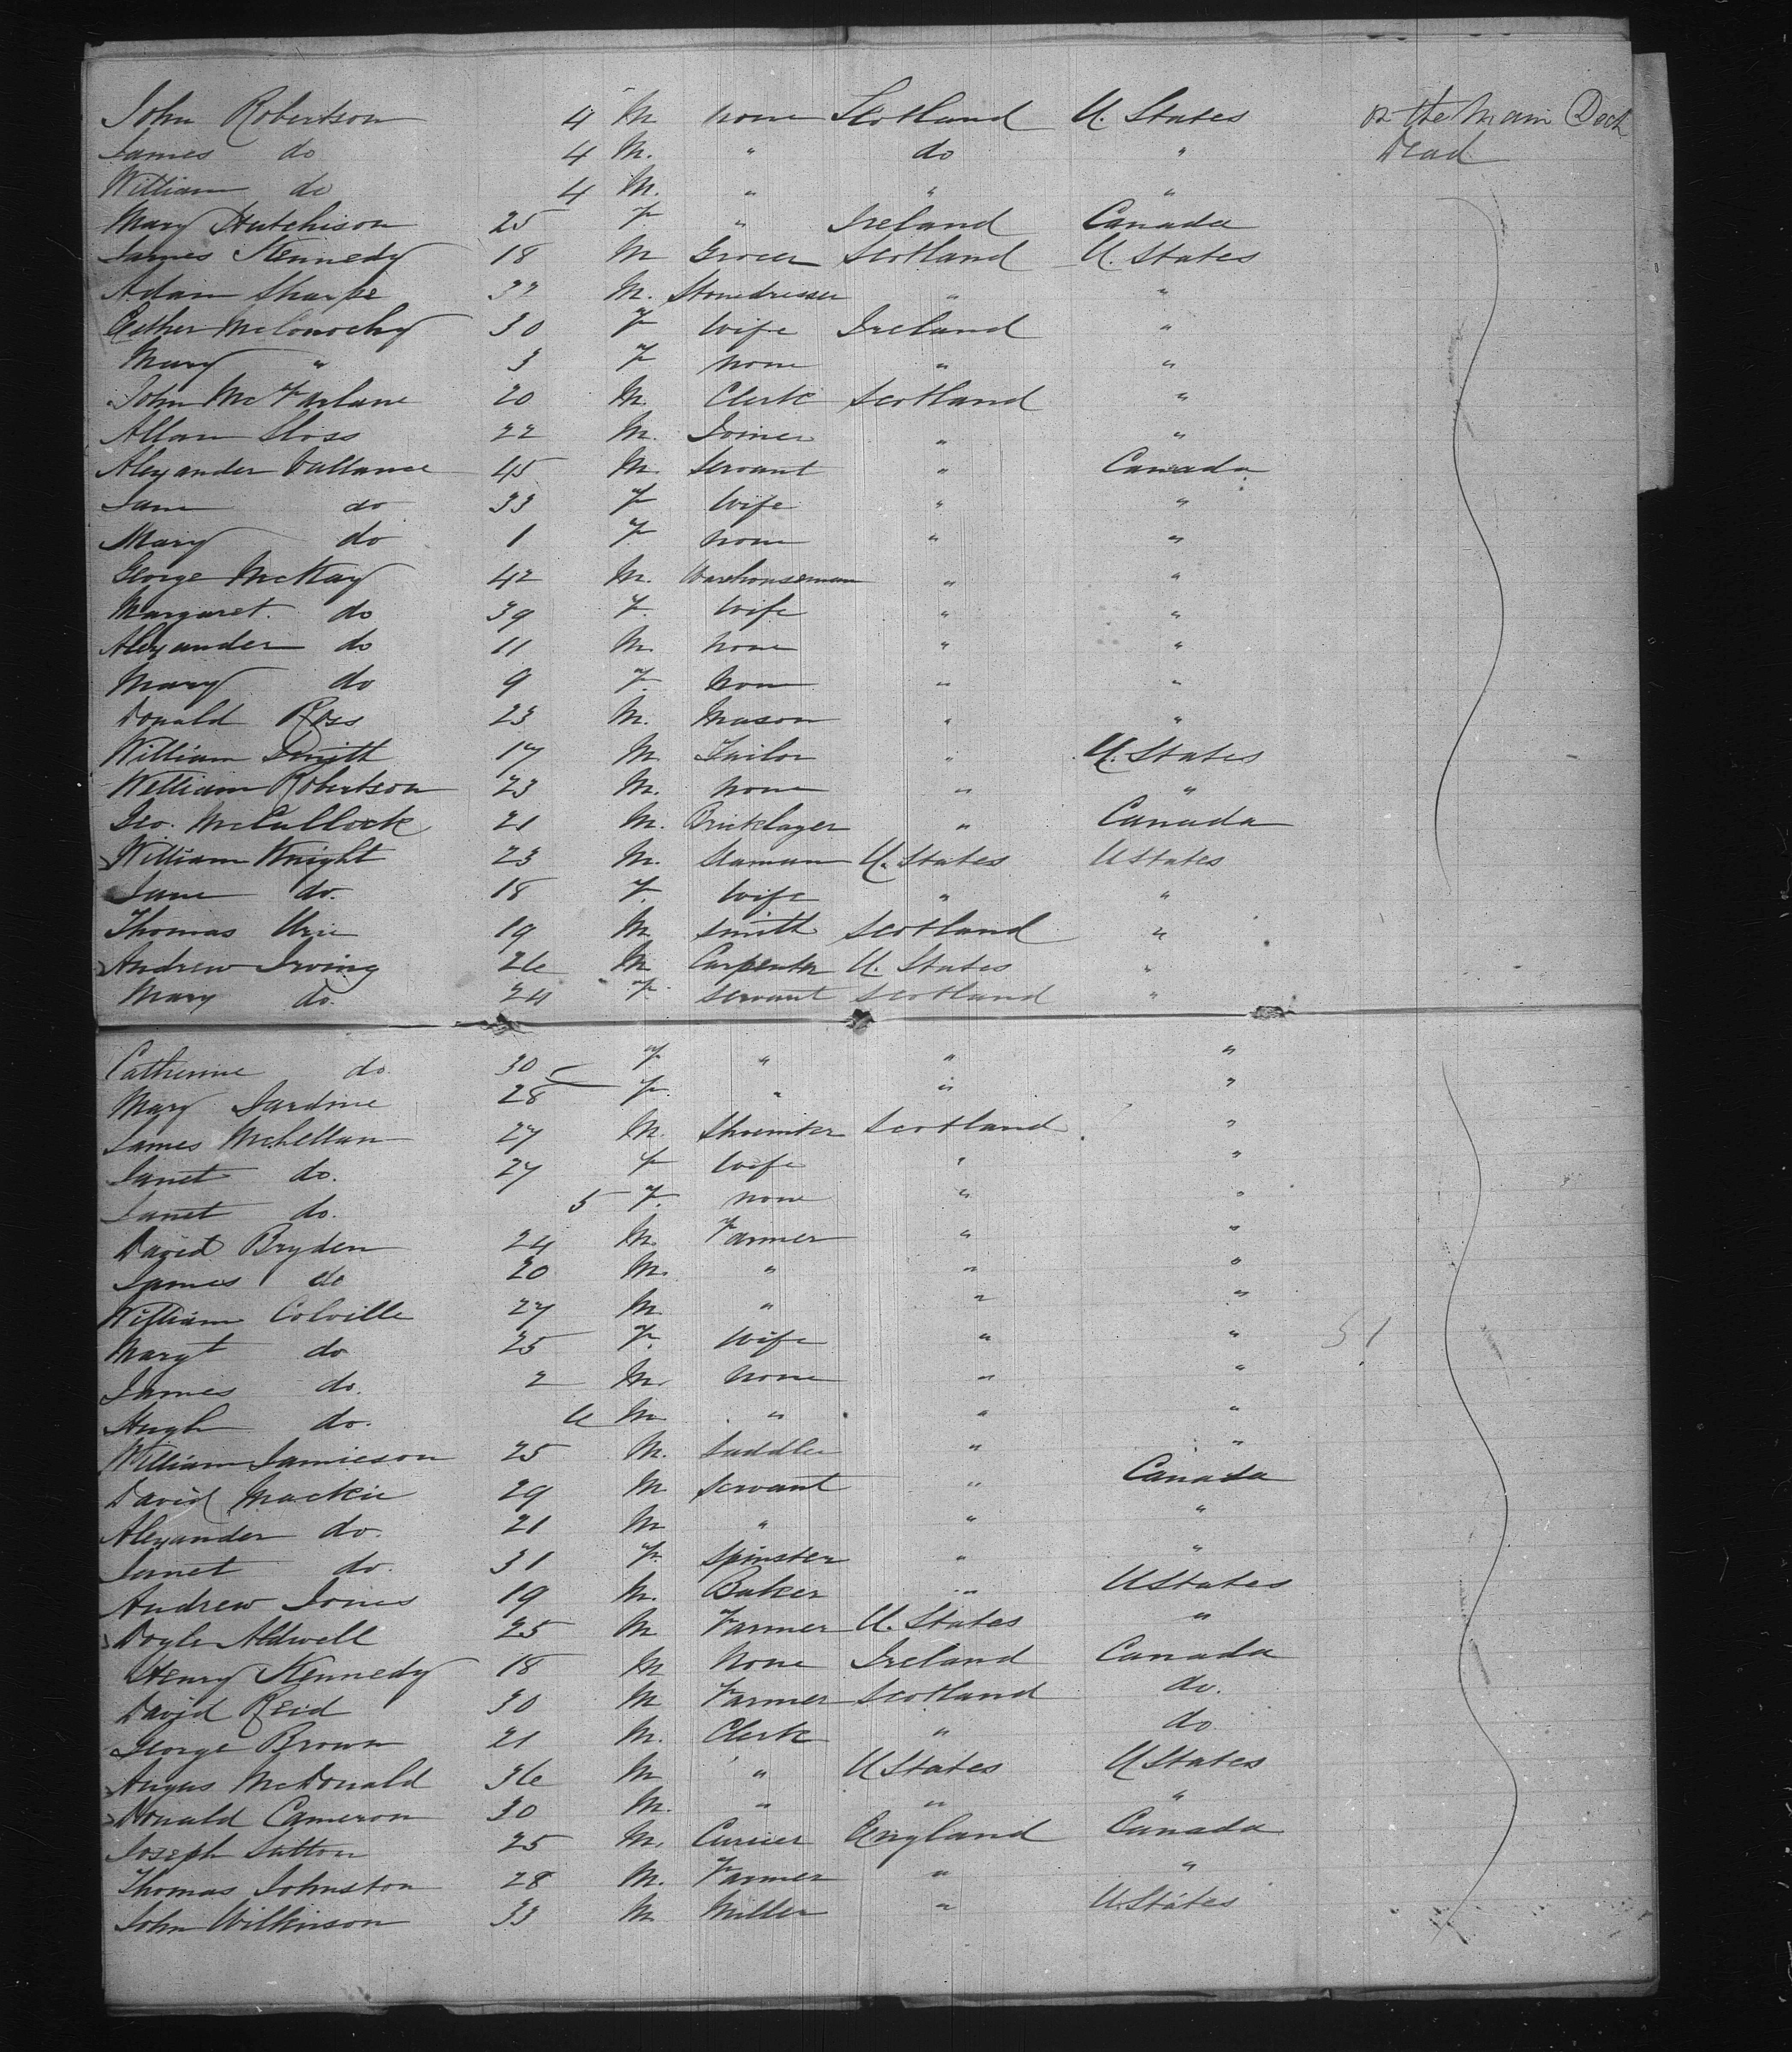 John Robertson 4 M none Scotland U. States on the Main Deck
James do 4 M. " do " Dead
William do 4 M. " " "
Mary Hutchison 25 F " Ireland Canada
James Kennedy 18 M Grocer Scotland U. States
Adam Sharpe M. Stonedresser " "
Esther McConochy 30 F Wife Ireland "
Mary " 3 F none " "
John McFarlane 20 M. Clerk Scotland "
Allan Sloss 22 M. Joiner " "
Alexander Vallance 45 M. Servant " Canada
Jane do 33 F Wife " "
Mary do 1 F none " "
George McKay 42 M. Warehouseman " "
Margaret. do 39 F. Wife " "
Alexander do 11 M. none " "
Mary do 9 F. none " "
Donald Ross 23 M. Mason " "
William Smith 17 M Tailor " U. States
William Robertson 23 M. none " "
Geo. McCullock 21 M. Bricklayer " Canada
William Knight 23 M. Seaman U. States U States
Jane do. 18 F. Wife " "
Thomas Urie 19 M Smith Scotland "
Andrew Irving 26 M Carpenter U. States "
Mary do. 24 F Servant Scotland "
Catherine do. 30 F " " "
Mary Jardine 28 F. " " "
James McLellan 27 M. Shoemker Scotland "
Janet do. 27 F Wife " "
Janet do. 5 F. none " "
David Bryden 24 M. Farmer " "
James do 20 M. " " "
William Colville 27 M " " "
Margt do 25 F. Wife " " 51
James do. 2 M. none " "
Hugh do. 6 M " " "
William Jamieson 25 M. Saddler " "
David Mackie 29 M Servant " Canada
Alexander do. 21 M " " "
Janet do. 31 F. Spinster " "
Andrew Jones 19 M. Baker " U States
Doyle Aldwell 25 M Farmer U. States "
Henry Kennedy 18 M None Ireland Canada
David Reid 30 M Farmer Scotland do.
George Brown 21 M. Clerk " do
Angus McDonald 36 M " U States U States
Donald Cameron 30 M. " " "
Joseph Sutton 25 M. Currier England Canada
Thomas Johnston 28 M. Farmer " "
John Wilkinson 33 M Miller " U. States